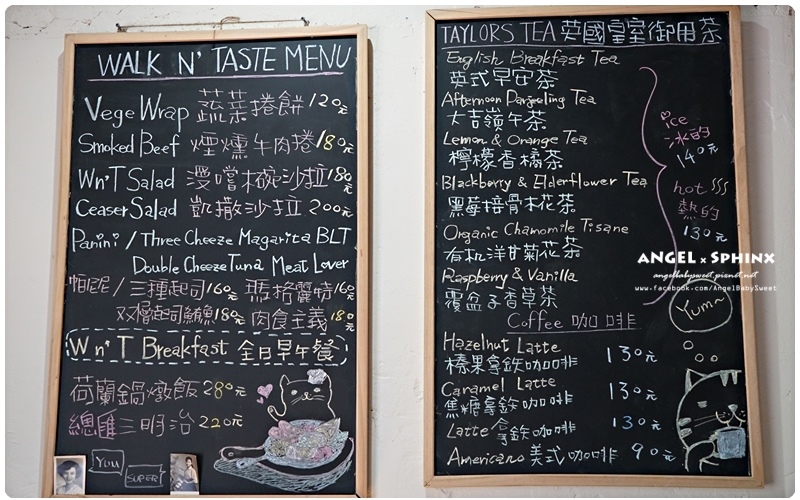 WALK N' TASTE MENU
Vege Wrap 蔬菜捲餅 120元
Smoked Beef 煙燻牛肉捲 180元
Wn'T Salad 漫嚐椀沙拉 180元
Ceaser Salad 凱撒沙拉 200元
Panini / Three Cheeze Magarita BLT
Double Cheeze Tuna Meat Lover
帕尼尼 / 三種起司 160元 瑪格麗特 160元
双層起司鮪魚 180元 肉食主義 180元
Wn'T Breakfast 全日早午餐
荷蘭鍋燉飯 280元
總匯三明治 220元
YOU
SUPER!
TAYLORS TEA 英國皇室御用茶
English Breakfast Tea
英式早安茶
Afternoon Darjeeling Tea
大吉嶺午茶
Lemon & Orange Tea
檸檬香橘茶
Blackberry & Elderflower Tea
黑莓接骨木花茶
Organic Chamomile Tisane
有机洋甘菊花茶
Raspberry & Vanilla
覆盆子香草茶
ice
冰的
140元
hot
熱的
130元
Coffee 咖啡
Hazelnut Latte
榛果拿鉄咖啡 130元
Caramel Latte
焦糖拿鉄咖啡 130元
Latte 拿鉄咖啡 130元
Americano 美式咖啡 90元
Yum~
ANGEL x SPHINX
angelbabysweet.pixnet.net
www.facebook.com/AngelBabySweet